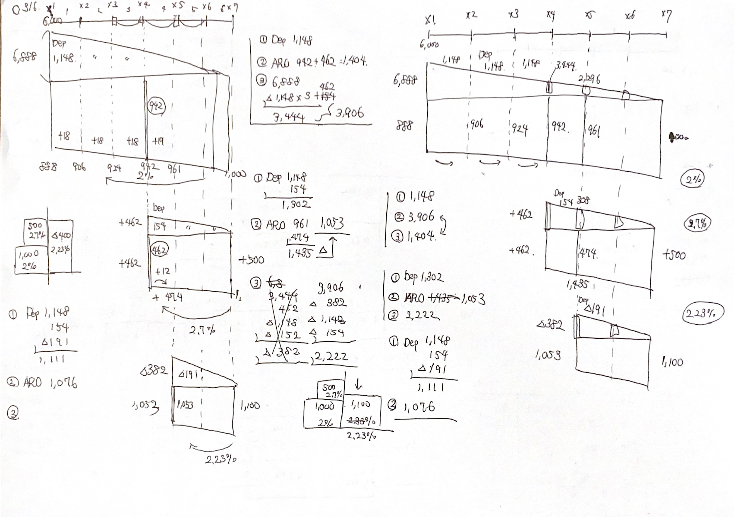 x1 x2 x3 x4 x5 x6 x7
6,000
Dep
6,888 1,148
942
+18 +18 +18 +19
888 906 924 942 961 1,000
2%
① Dep 1,148
② ARO 942+462=1,404.
③ 6,888 462
△1,148×3 +154
3,444 3,906
x1 x2 x3 x4 x5 x6 x7
6,000
Dep
1,148 1,148 1,148
3,444
2,296
6,888
888 906 924 942. 961
2%
500
2.7%
△400
2.23%
1,000
2%
Dep
+462 154
462
+462 +12 +500
+474
2.7%
① Dep 1,148
154
1,302
② ARO 961 1,053
474
1,435 △
③
3,444 3,906
462 △ 882
△ 1,148
△ 152 △ 154
△382 2,222
① 1,148
② 3,906
③ 1,404.
① Dep 1,302
② ARO 1,435 1,053
② 2,222
① Dep 1,148
154
△191
1,111
② 1,076
Dep
154 308
+462
+462. 474 +500
1,435
2.7%
Dep
△191
△382
1,053 1,100
2.23%
① Dep 1,148
154
△191
1,111
② ARO 1,076
③
△382 △191
1,053 1,053 1,100
2.23%
500
2.7%
1,000 1,100
2% 2.23%
2.23%